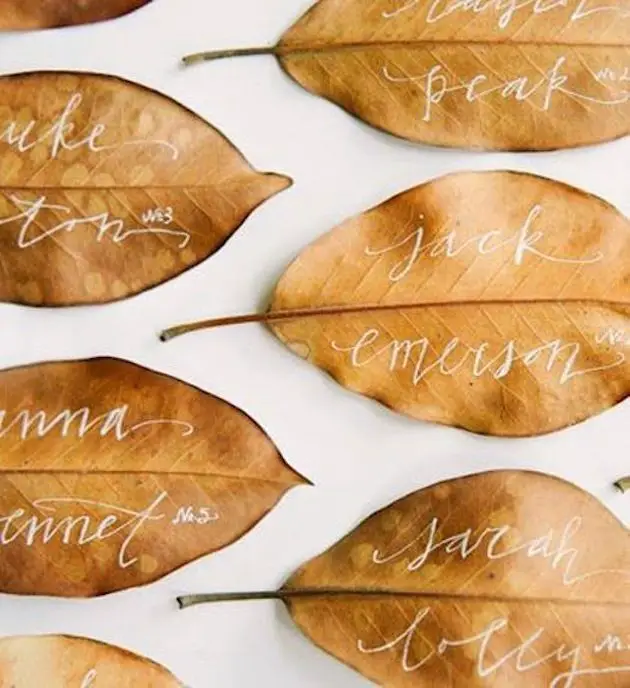 peak
uke
ton No3
jack
emerson No
anna
ennet No.5
sarah
lolly No